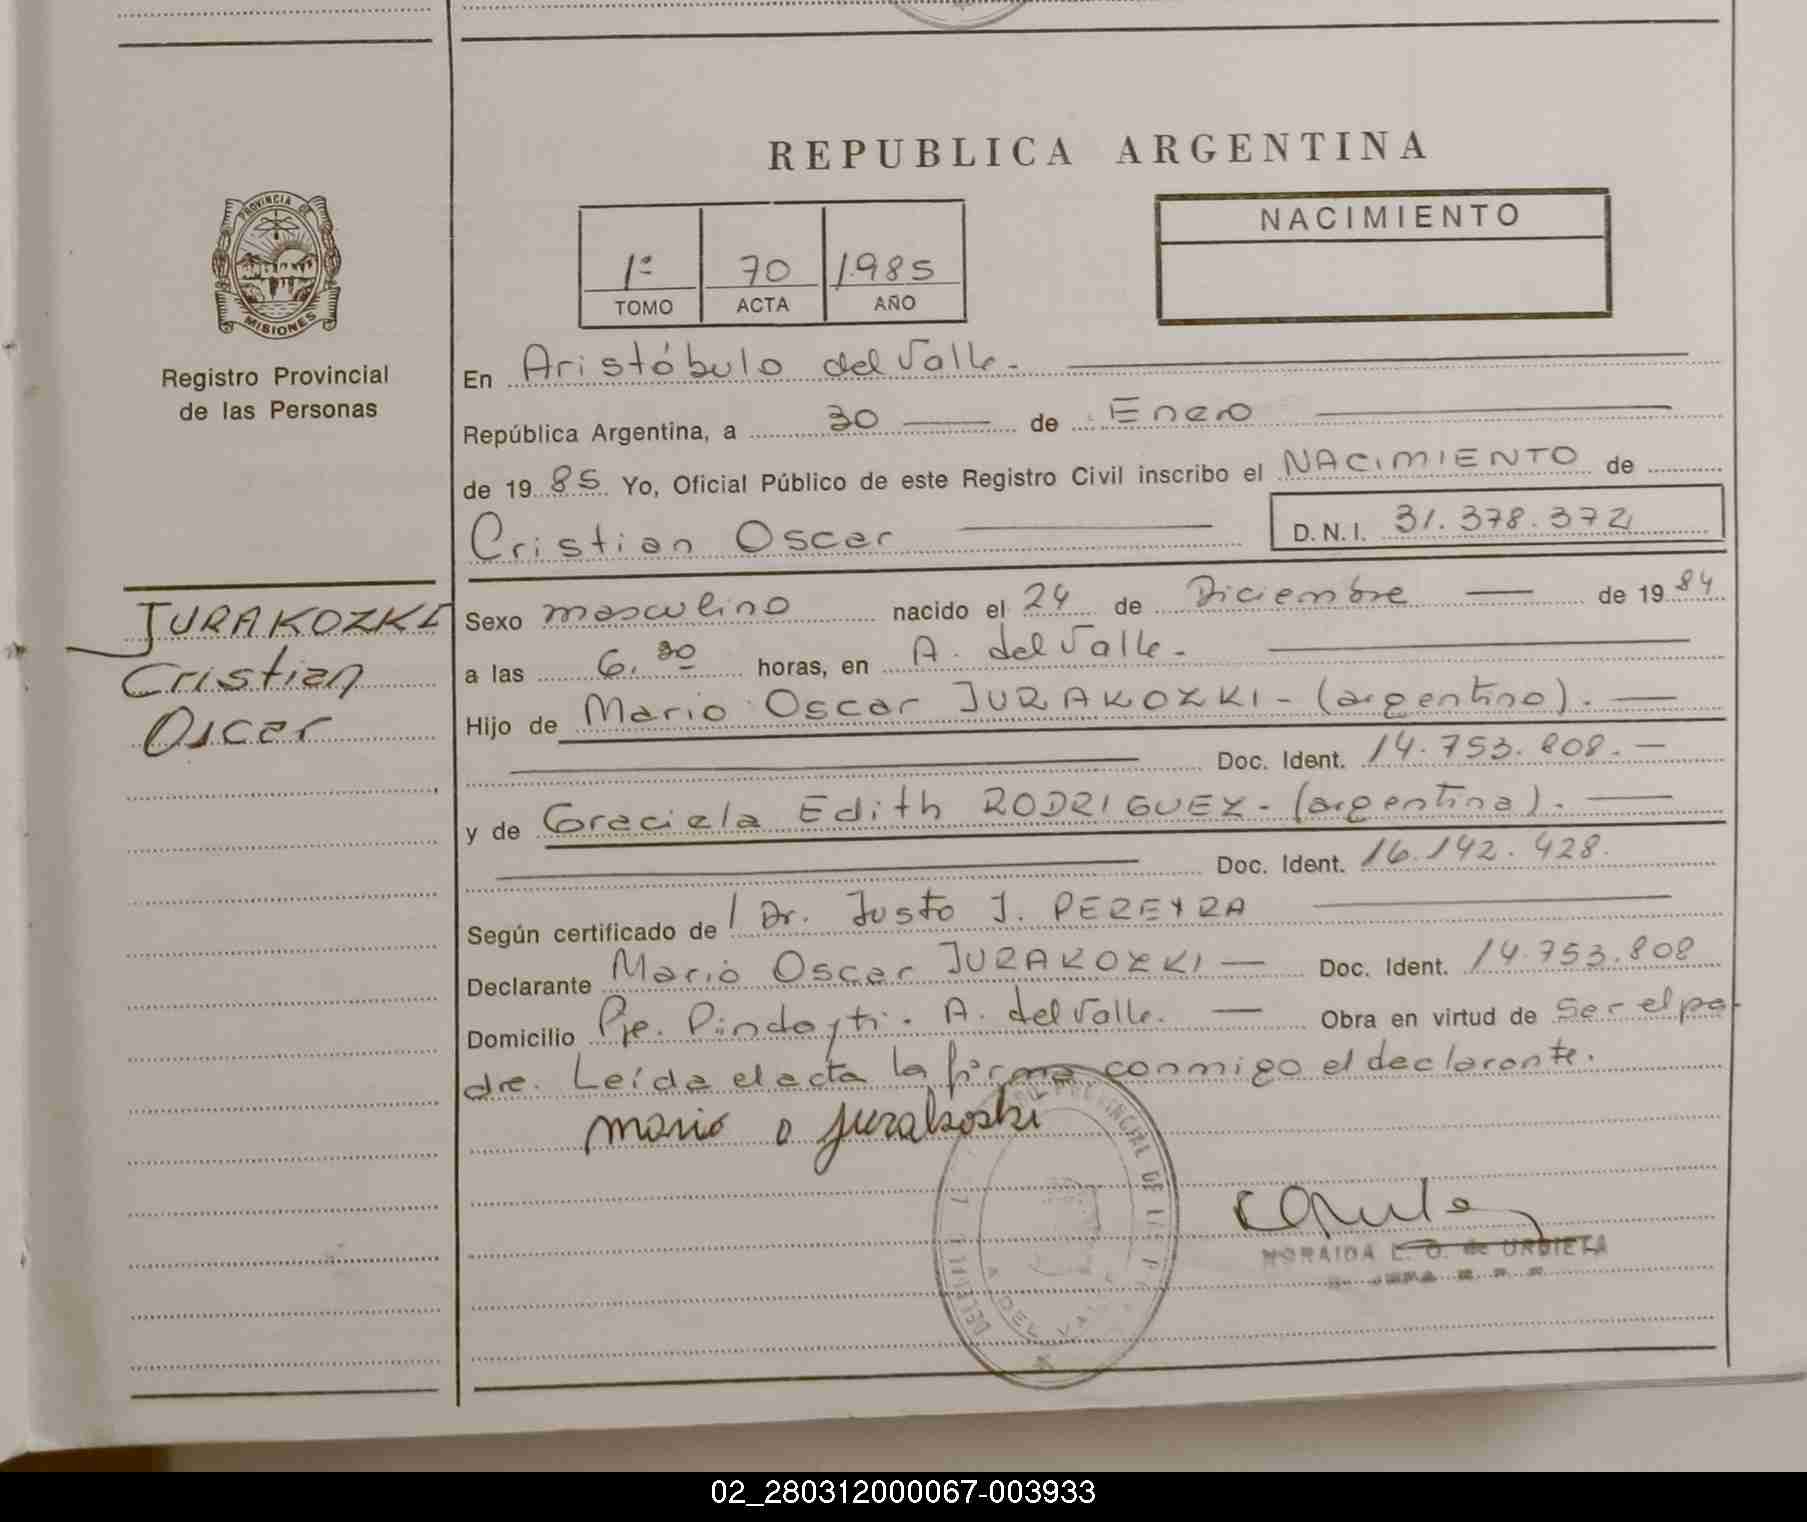 REPUBLICA ARGENTINA
PROVINCIA DE
MISIONES
Registro Provincial
de las Personas
1º 70 1.985
TOMO ACTA AÑO
NACIMIENTO
En Aristóbulo del Valle.-
República Argentina, a 30 de Enero
de 19 85 Yo, Oficial Público de este Registro Civil inscribo el NACIMIENTO de
Cristian Oscar D.N.I. 31.378.372
JURAKOZKI
Cristian
Oscar
Sexo masculino nacido el 24 de Diciembre de 19 84
a las 6.30 horas, en A. del Valle.-
Hijo de Mario Oscar JURAKOZKI - (argentino).
Doc. Ident. 14.753.808.-
y de Graciela Edith RODRIGUEZ - (argentina).
Doc. Ident. 16.142.428.
Según certificado de Dr. Justo J. PEREYRA
Declarante Mario Oscar JURAKOZKI - Doc. Ident. 14.753.808
Domicilio Pje. Pindayti. A. del Valle. Obra en virtud de ser el pa-
dre. Leída el acta la firma conmigo el declarante.
mario o jurakoski
PROVINCIAL DE
A DEL VALLE
NORAIDA E. O. de URBIETA
02_280312000067-003933